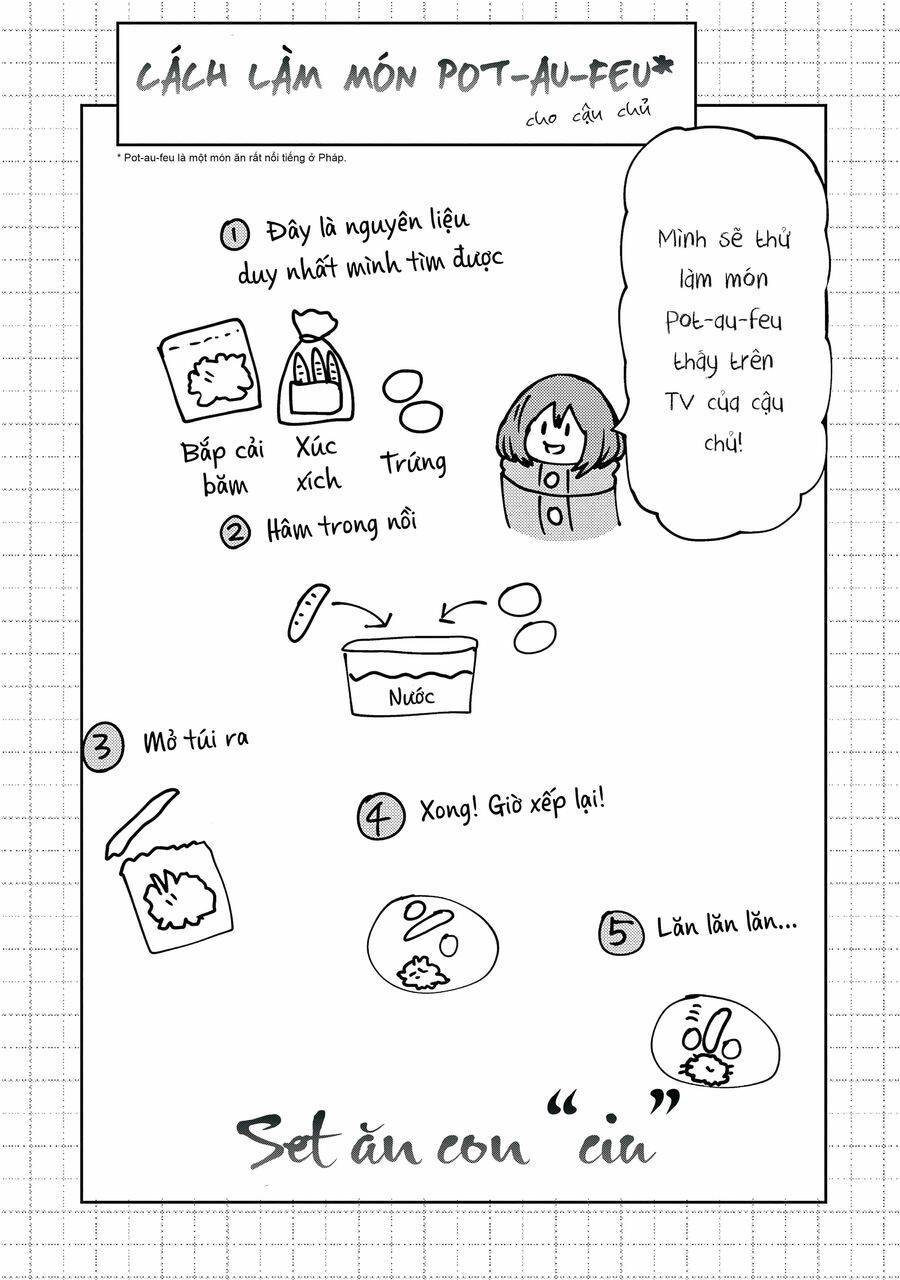 CÁCH LÀM MÓN POT-AU-FEU*
cho cậu chủ
* Pot-au-feu là một món ăn rất nổi tiếng ở Pháp.
Mình sẽ thử
làm món
Pot-au-feu
thấy trên
TV của cậu
chủ!
1 Đây là nguyên liệu
duy nhất mình tìm được
Bắp cải
băm
Xúc
xích
Trứng
2 Hâm trong nồi
Nước
3 Mở túi ra
4 Xong! Giờ xếp lại!
5 Lăn lăn lăn...
Set ăn con "ciu"